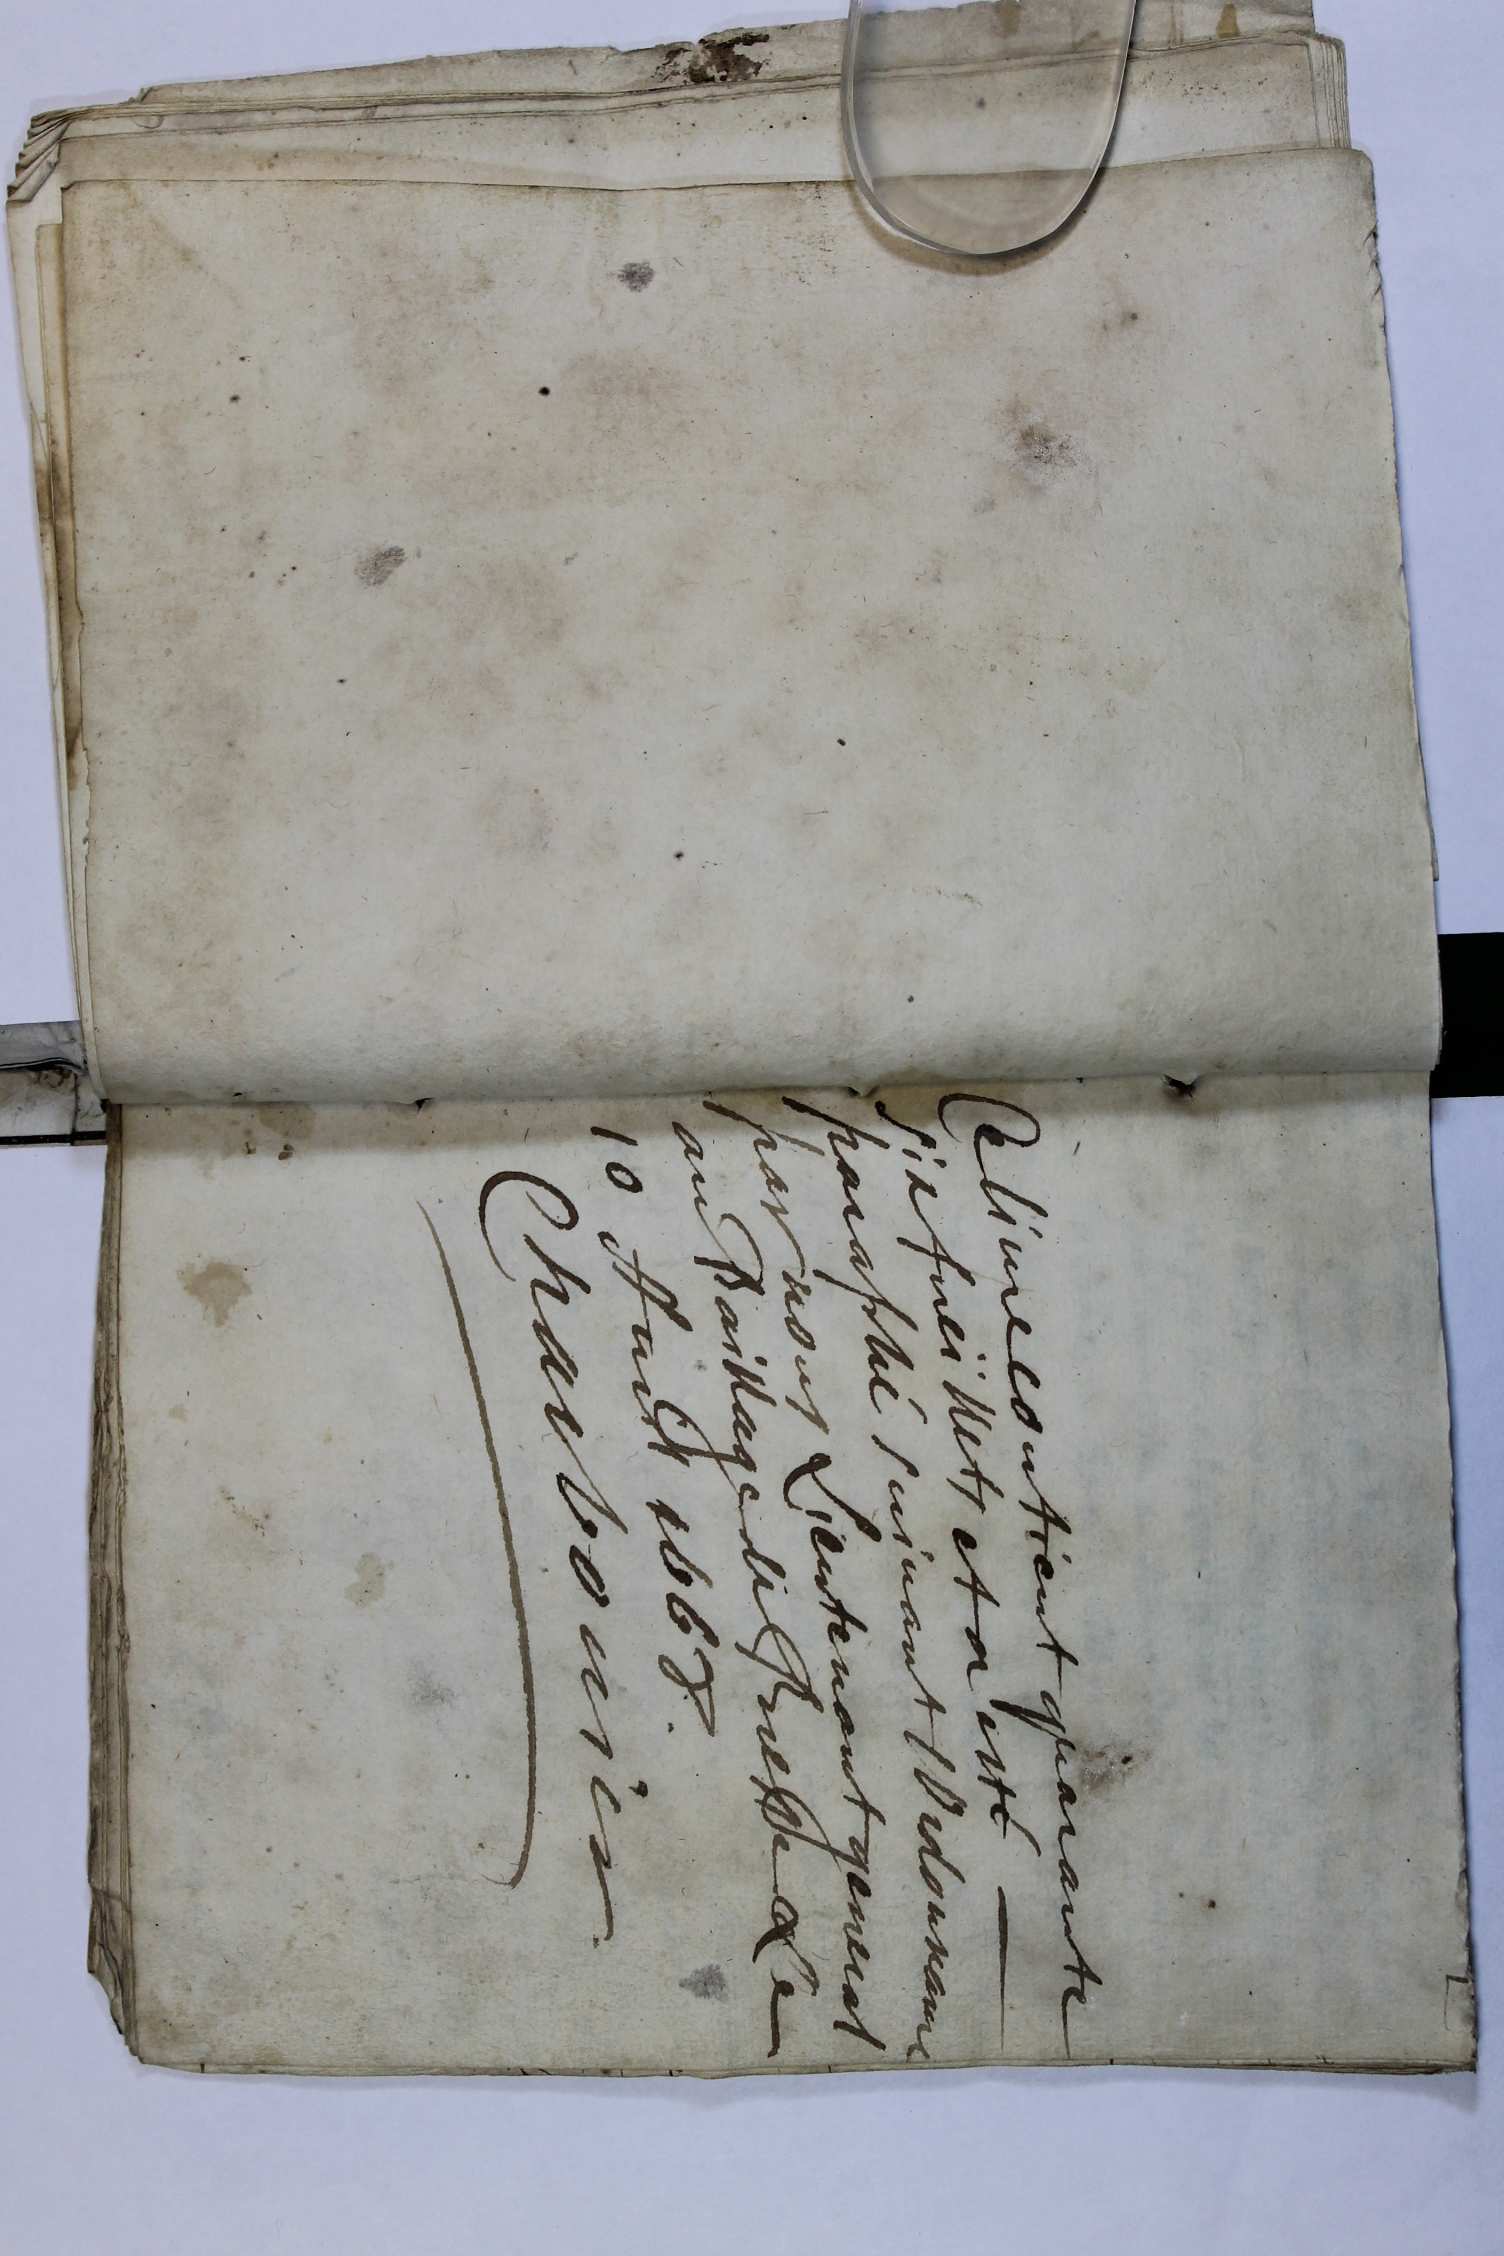 Ce livre contient quarante
six fueillets et a esté
paraphé suivant l'Ordonnance
par nous Lieutenant general
au Baillage de Bresse Le
10 Aust 1668.
Charbonnier